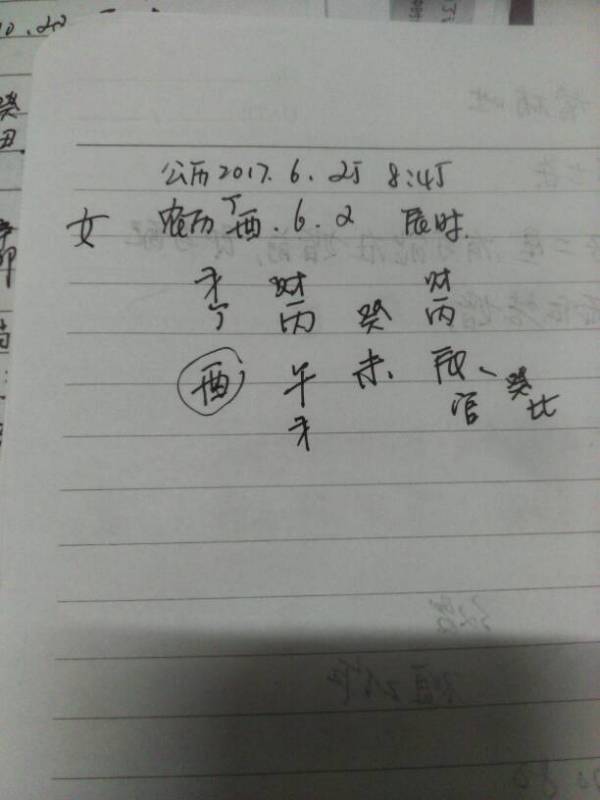 公历2017.6.25 8:45
女 农历丁酉.6.2 辰时.
才 财 财
丁 丙 癸 丙
酉 午 未. 辰、癸
官 比
才